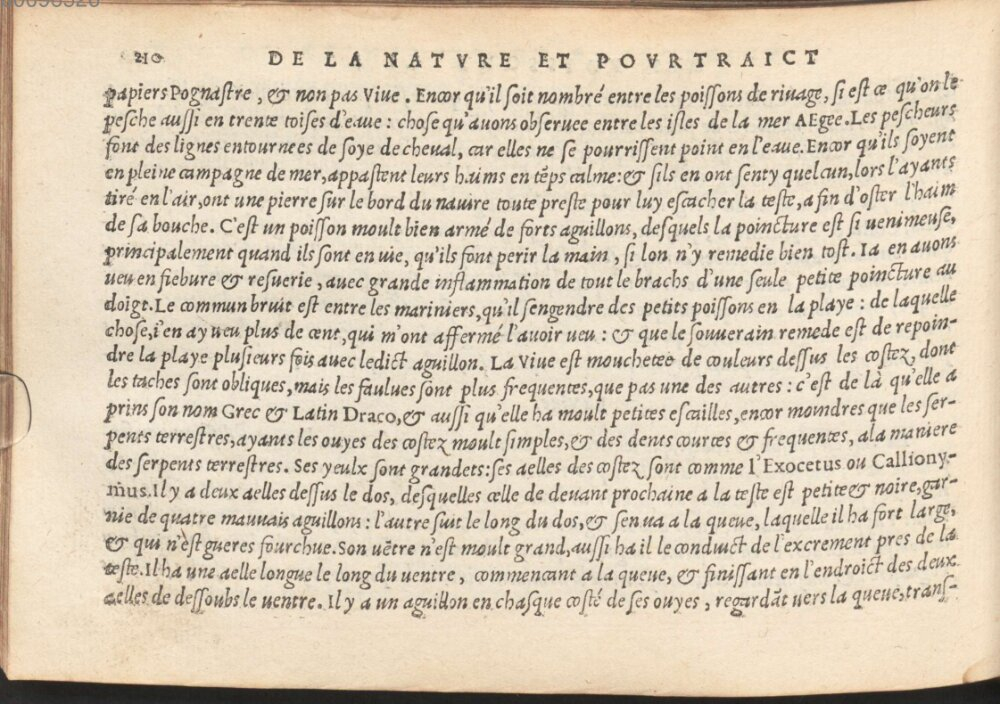 210 DE LA NATVRE ET POVRTRAICT
papiers Pognastre, & non pas Viue. Encor qu'il soit nombré entre les poissons de riuage, si est ce qu'on le
pesche aussi en trente toises d'eaue : chose qu'auons obseruee entre les isles de la mer AEgee. Les pescheurs
font des lignes entournees de soye de cheual, car elles ne se pourrissent point en l'eaue. Encor qu'ils soyent
en pleine campagne de mer, appastent leurs haims en tẽps calme: & sils en ont senty quelcun, lors l'ayants
tiré en l'air, ont une pierre sur le bord du nauire toute preste pour luy escacher la teste, a fin d'oster l'haim
de sa bouche. C'est un poisson moult bien armé de forts aguillons, desquels la poincture est si uenimeuse,
principalement quand ils sont en uie, qu'ils font perir la main, si lon n'y remedie bien tost. Ia en auons
ueu en fiebure & resuerie, auec grande inflammation de tout le brachs d'une seule petite poincture au
doigt. Le commun bruit est entre les mariniers, qu'il sengendre des petits poissons en la playe : de laquelle
chose, i'en ay ueu plus de cent, qui m'ont affermé l'auoir ueu : & que le souuerain remede est de repoin-
dre la playe plusieurs fois auec ledict aguillon. La Viue est mouchetee de couleurs dessus les costez, dont
les taches sont obliques, mais les faulues sont plus frequentes, que pas une des autres : c'est de là qu'elle a
prins son nom Grec & Latin Draco, & aussi qu'elle ha moult petites escailles, encor moindres que les ser-
pents terrestres, ayants les ouyes des costez moult simples, & des dents courtes & frequentes, a la maniere
des serpents terrestres. Ses yeulx sont grandets: ses aelles des costez sont comme l'Exocetus ou Calliony-
mus. Il y a deux aelles dessus le dos, desquelles celle de deuant prochaine a la teste est petite & noire, gar-
nie de quatre mauuais aguillons : l'autre suit le long du dos, & sen ua a la queue, laquelle il ha fort large,
& qui n'est gueres fourchue. Son uẽtre n'est moult grand, aussi ha il le conduict de l'excrement pres de la
teste. Il ha une aelle longue le long du uentre, commencant a la queue, & finissant en l'endroict des deux
aelles de dessoubs le uentre. Il y a un aguillon en chasque costé de ses ouyes, regardãt uers la queue, trans-